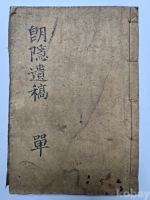 朗隱遺稿 單
kobay